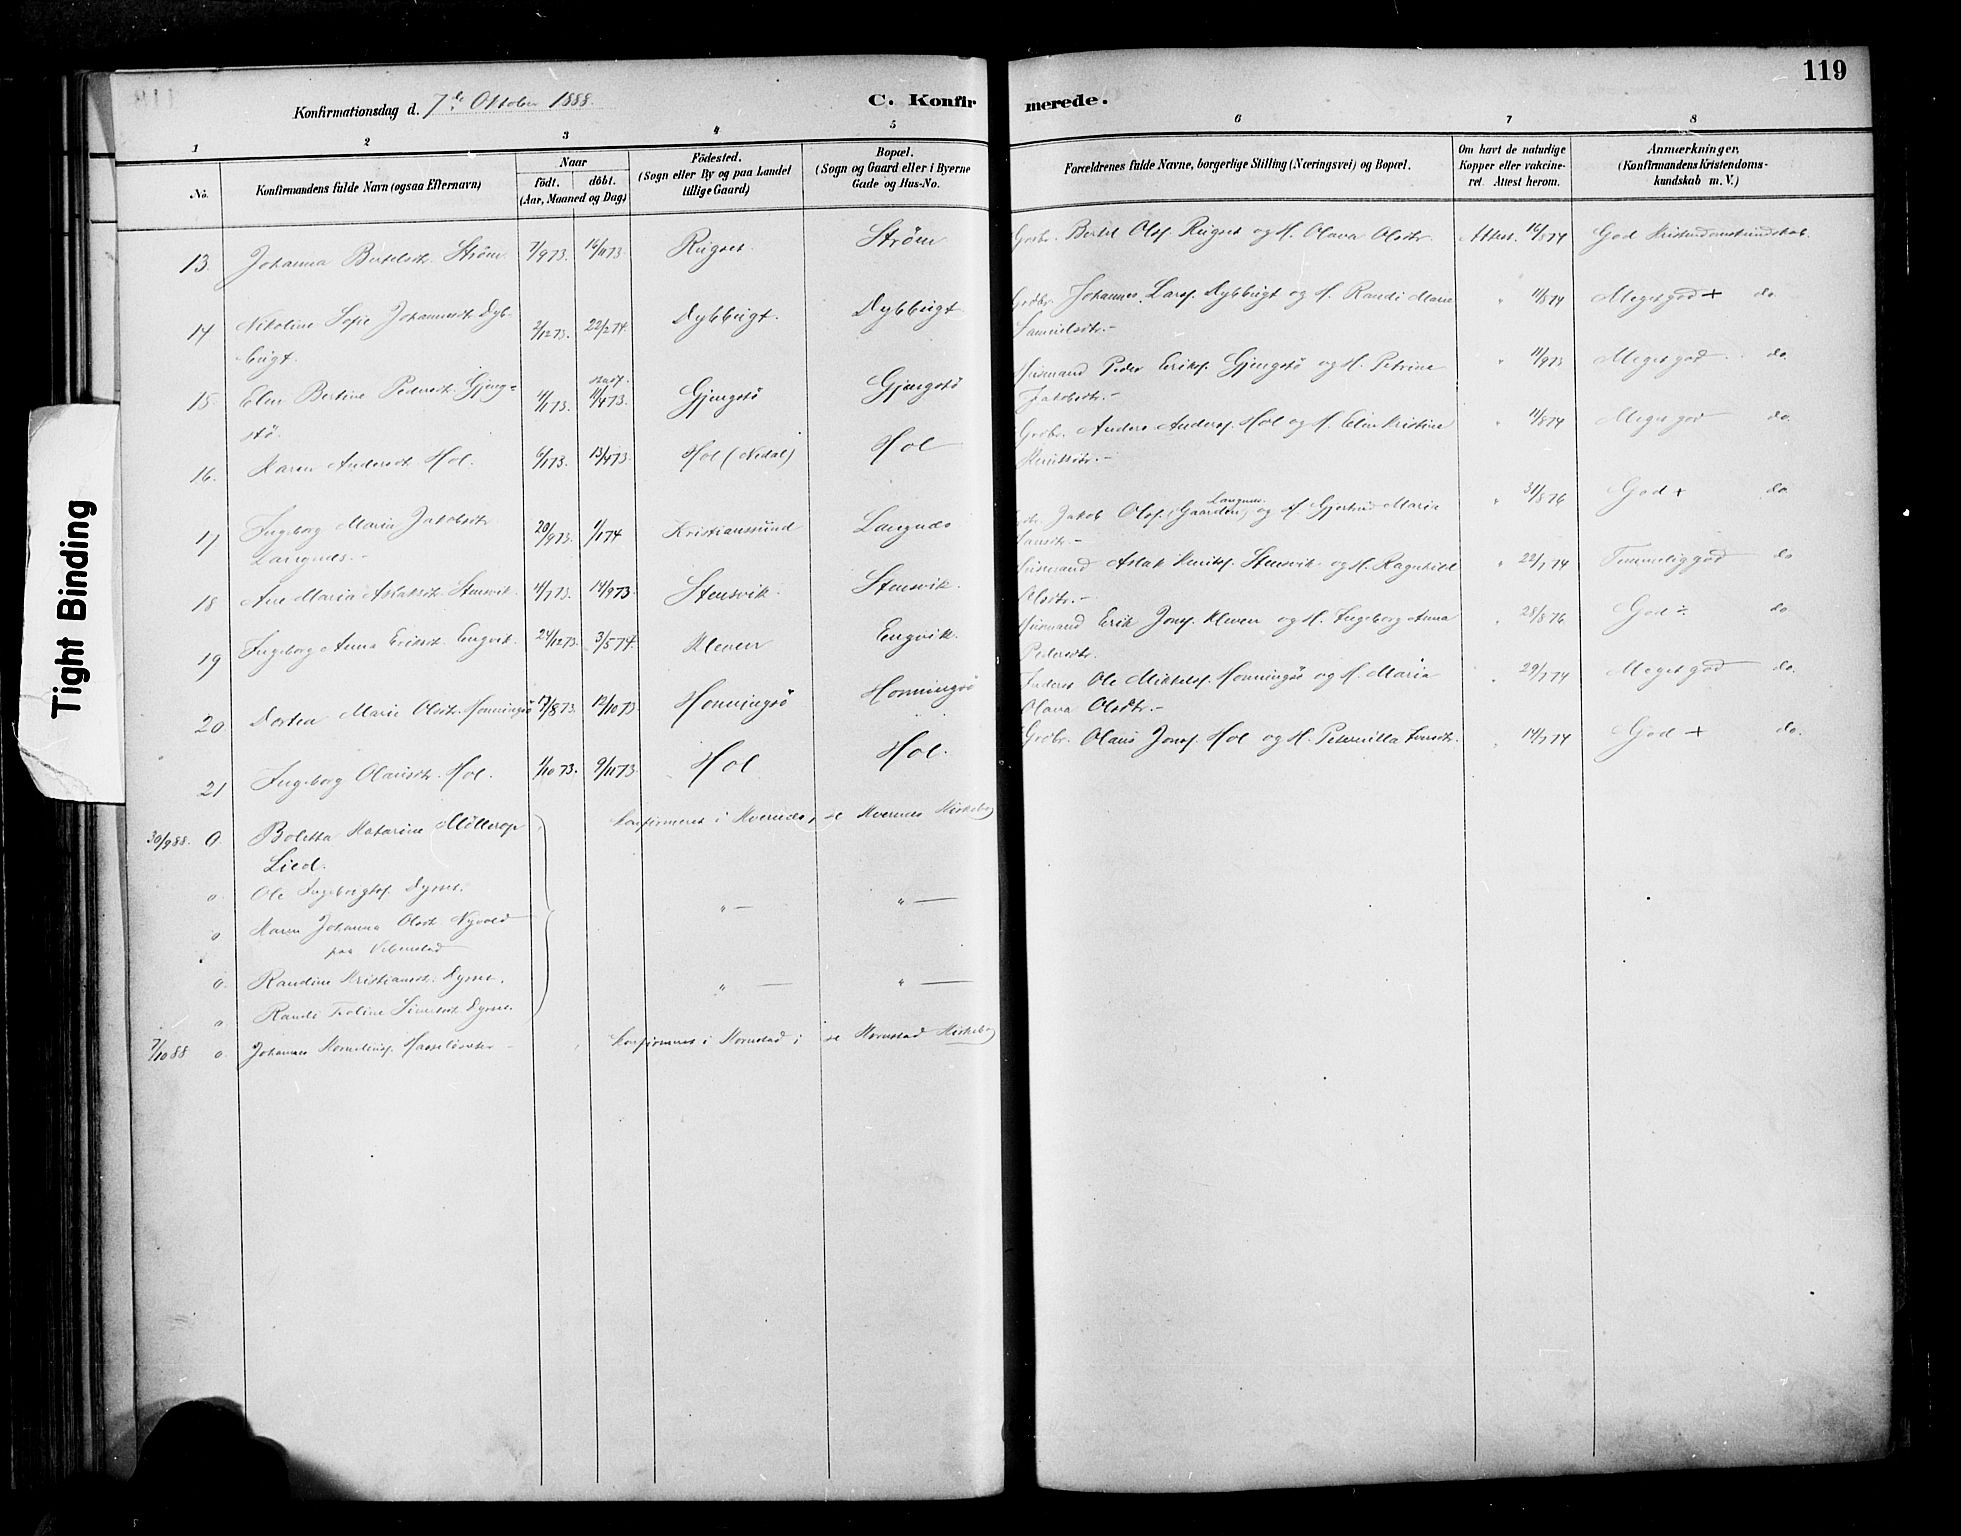 119
Konfirmationsdag d. 7de Oktober 1888.
C. Konfirmerede.
1 2 3 4 5 6 7 8
No.
Konfirmandens fulde Navn (ogsaa Efternavn)
Naar
födt. döbt.
(Aar, Maaned og Dag)
Födested.
(Sogn eller By og paa Landet
tillige Gaard)
Bopæl.
(Sogn og Gaard eller i Byerne
Gade og Hus-No.
Forældrenes fulde Navne, borgerlige Stilling (Næringsvei) og Bopæl.
Om havt de naturlige
Kopper eller vakcine-
ret. Attest herom.
Anmærkninger,
(Konfirmandens Kristendoms-
kundskab m. V.)
13. Johanna Bertelsdtr. Strøm. 7/9 73. 16/11 73. Rugset. Strøm Grdbr. Bertel Olsf. Rugset og H. Olava Olsdtr. Attest. 16/8 74 God Kristendomskundskab.
14 Nikoline Sofie Johannesdtr. Dyb-
bugt. 2/12 73. 22/2 74. Dybbugt. Dybbugt Grdbr. Johannes Larsf. Dybbugt og H. Randi Marie
Samuelsdtr.- " 11/8 74 Meget god + do.
15. Elen Bertine Pedersdtr. Gjengs-
tö. 4/1 73. 11/4 73. Gjengstö Gjengstö Husmand Peder Eriksf. Gjengstö og H. Petrine
Jakobsdtr.- " 11/9 73 Meget god do.
16. Karen Andersdtr. Hol. 6/1 73. 13/4 73. Hol (Nedal) Hol Grdbr. Anders Andersf. Hol og H. Elen Kristine
Henriksdtr.- " 11/8 74 Meget god do.
17 Ingeborg Maria Jakobsdtr
Langnes.- 20/9 73. 1/1 74 Kristianssund Langnes Jakob Olsf. (Gaarden) Langnes og H. Gjertrud Maria
" 31/8 76 God + do.
18 Ane Maria Aslaksdtr. Stensvik. 4/7 73. 14/9 73. Stensvik. Stensvik. Husmand Aslak Henriksf. Stensvik og H. Ragnhild
Olsdtr.- " 22/7 74 Temmelig god do
19 Ingeborg Anna Eriksdtr. Engvik. 24/12 73. 3/5 74. Kleven Engvik. Husmand Erik Jonsf. Kleven og H. Ingeborg Anna
Pedersdtr. " 28/8 76 God ÷ do.
20 Dortea Marie Olsdtr. Honningsö 17/8 73. 12/10 73. Honningsö Honningsö Ole Mikkelsf. Honningsö og H. Maria
Olava Olsdtr.- " 29/7 74 Meget god do.
21 Ingeborg Olausdtr. Hol. 1/10 73. 9/11 73. Hol Hol. Grdbr. Olaus Jonsf. Hol og H. Peternilla Larsdtr. " 14/7 74 God + do.
30/9 88. O. Boletta Katarine Möllerop
Lied. Konfirmeret i Kvernes, se Kvernes Kirkebog
o Ole Ingebrigtsf. Dyrne.
o Karen Johanna Olsdtr Nyvold
paa Vebenstad " — " —
o. Randine Kristiansdtr. Dyrne.
o Randi Toline Sivertsdtr Dyrne. " — " —
7/10 88 o. Johannes Kornelinsf. Haaseløvrvær - Konfirmeret i Kornstad; se Kornstad Kirkebog
Tight Binding